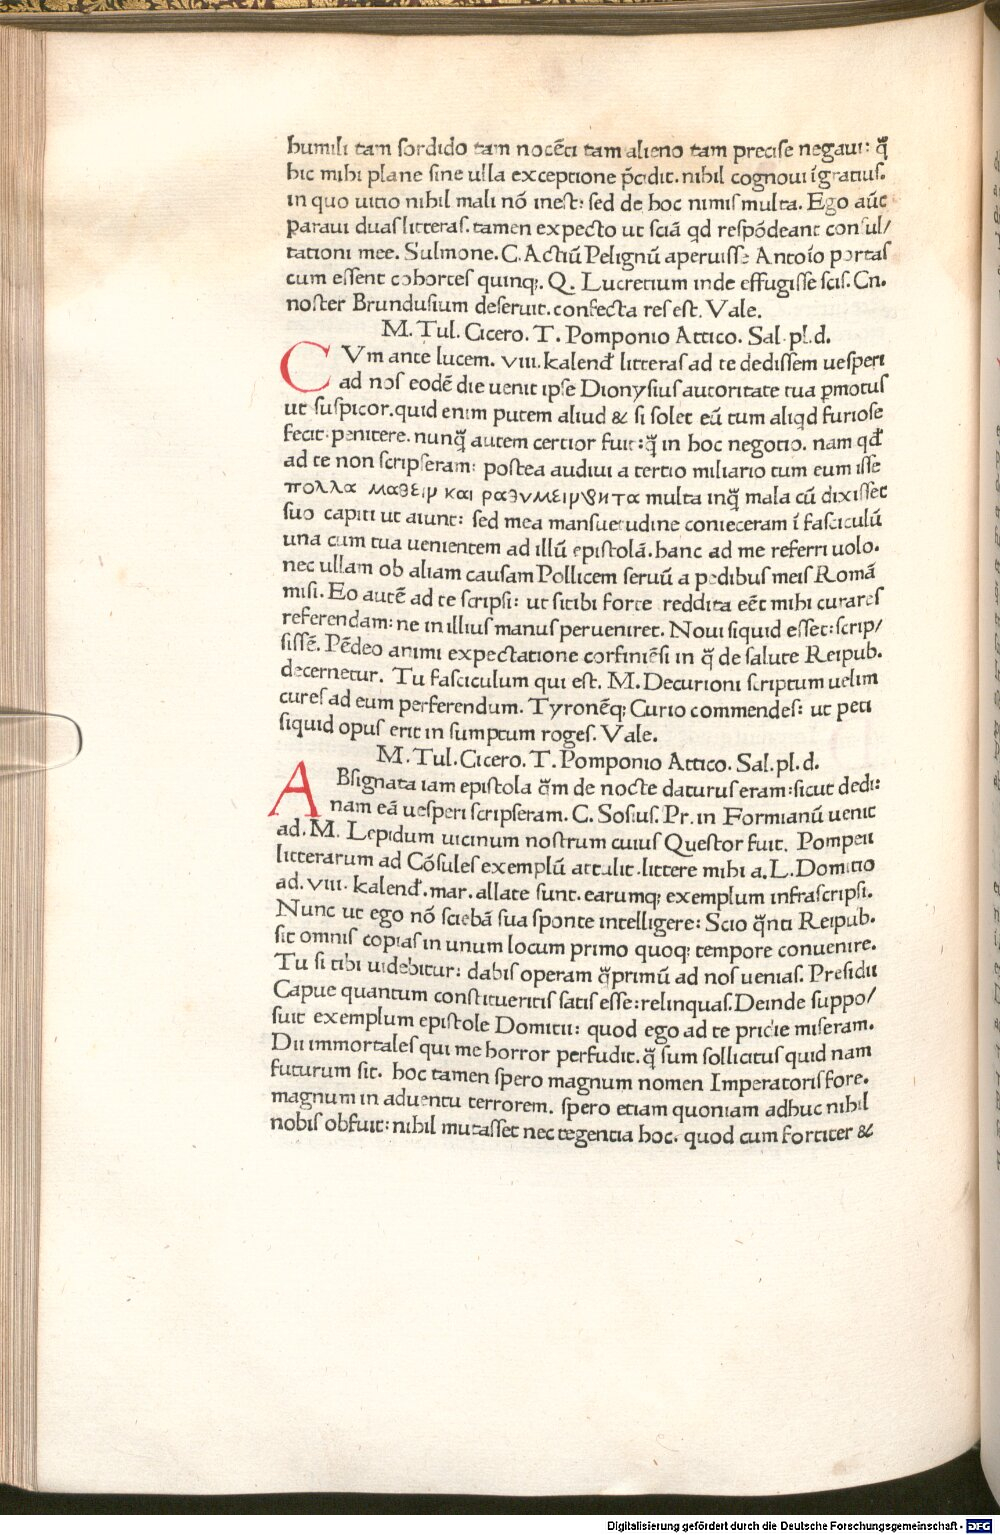 humili tam ſordido tam nocēti tam alieno tam preciſe negaui: q̄
hic mihi plane ſine ulla exceptione p̄cidit. nihil cognoui īgratiuſ.
in quo uitio nihil mali nō ineſt: ſed de hoc nimiſ multa. Ego aūt
paraui duaſ litteraſ. tamen expecto ut ſciā qd reſpōdeant conſul/
tationi mee. Sulmone. C. Actiū Pelignū aperuiſſe Antoīo portaſ
cum eſſent cohorteſ quinq;. Q. Lucretium inde effugiſſe ſciſ. Cn.
noſter Brunduſium deſeruit. confecta reſ eſt. Vale.
M. Tul. Cicero. T. Pomponio Attico. Sal. pl. d.
CVm ante lucem. viii. kalend̄ litteraſ ad te dediſſem ueſperi
ad noſ eodē die uenit ipſe Dionyſiuſ autoritate tua p̄motuſ
ut ſuſpicor. quid enim putem aliud & ſi ſolet eū tum aliqd furioſe
fecit. penitere. nunq̄ autem certior fuit: q̄ in hoc negotio. nam qd̄
ad te non ſcripſeram: poſtea audiui a tertio miliario tum eum iſſe
πολλα μαθειν και ραθυμειν multa inq̄ mala cū dixiſſet
ſuo capiti ut aiunt: ſed mea manſuetudine conieceram ī faſciculū
una cum tua uenientem ad illū epiſtolā. hanc ad me referri uolo.
nec ullam ob aliam cauſam Pollicem ſeruū a pedibuſ meiſ Romā
miſi. Eo autē ad te ſcripſi: ut ſi tibi forte reddita eēt mihi curareſ
referendam: ne in illiuſ manuſ perueniret. Noui ſiquid eſſet: ſcrip/
ſiſſē. Pēdeo animi expectatione corfiniēſi in q̄ de ſalute Reipub.
decernetur. Tu faſciculum qui eſt. M. Decurioni ſcriptum uelim
cureſ ad eum perferendum. Tyronēq; Curio commendeſ: ut peti
ſiquid opuſ erit in ſumptum rogeſ. Vale.
M. Tul. Cicero. T. Pomponio Attico. Sal. pl. d.
ABſignata iam epiſtola q̄m de nocte daturuſ eram: ſicut dedi:
nam eā ueſperi ſcripſeram. C. Soſiuſ. Pr. in Formianū uenit
ad. M. Lepidum uicinum noſtrum cuiuſ Queſtor fuit. Pompeii
litterarum ad Cōſuleſ exemplū attulit. littere mihi a. L. Domitio
ad. viii. kalend̄. mar. allate ſunt. earumq; exemplum infraſcripſi.
Nunc ut ego nō ſciebā ſua ſponte intelligere: Scio q̄nti Reipub.
ſit omniſ copiaſ in unum locum primo quoq; tempore conuenire.
Tu ſi tibi uidebitur: dabiſ operam q̄primū ad noſ ueniaſ. Preſidii
Capue quantum conſtitueritiſ ſatiſ eſſe: relinquaſ. Deinde ſuppo/
ſuit exemplum epiſtole Domitii: quod ego ad te pridie miſeram.
Dii immortaleſ qui me horror perfudit. q̄ ſum ſollicituſ quid nam
futurum ſit. hoc tamen ſpero magnum nomen Imperatoriſ fore.
magnum in aduentu terrorem. ſpero etiam quoniam adhuc nihil
nobiſ obfuit: nihil mutaſſet nec tegentia hoc. quod cum fortiter &
Digitalisierung gefördert durch die Deutsche Forschungsgemeinschaft - DFG